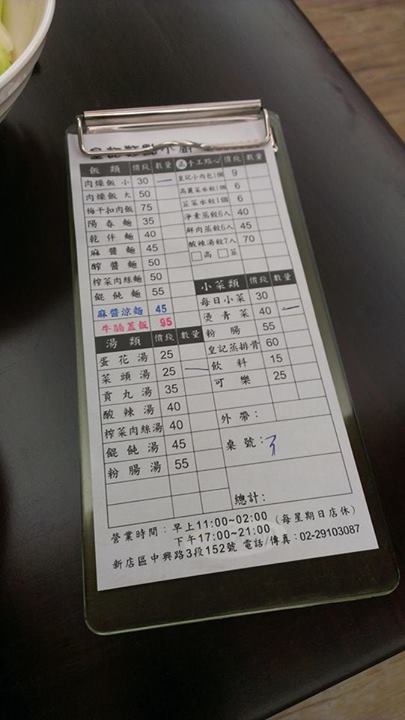 飯類 價段 數量
肉燥飯 小 30 一
肉燥飯 大 50
梅干扣肉飯 75
陽春麵 35
乾伴麵 40
麻醬麵 45
醡醬麵 50
榨菜肉絲麵 50
餛飩麵 55
麻醬涼麵 45
牛腩蓋飯 95
湯類 價段 數量
蛋花湯 25
菜頭湯 25 一
貢丸湯 35
酸辣湯 40
榨菜肉絲湯 40
餛飩湯 45
粉腸湯 55
手工點心 價段 數量
皇記小肉包1個 9
高麗菜水餃1個 6
韮菜水餃1個 6
淨素蒸餃6入 40
鮮肉蒸餃6入 45
酸辣湯餃7入 70
□高 □韮
小菜類 價段 數量
每日小菜 30
燙青菜 40 一
粉腸 55
皇記蒸排骨 60
飲料 15
可樂 25
外帶:
桌號:
總計:
營業時間:早上11:00~02:00 (每星期日店休)
下午17:00~21:00
新店區中興路3段152號 電話/傳真:02-29103087